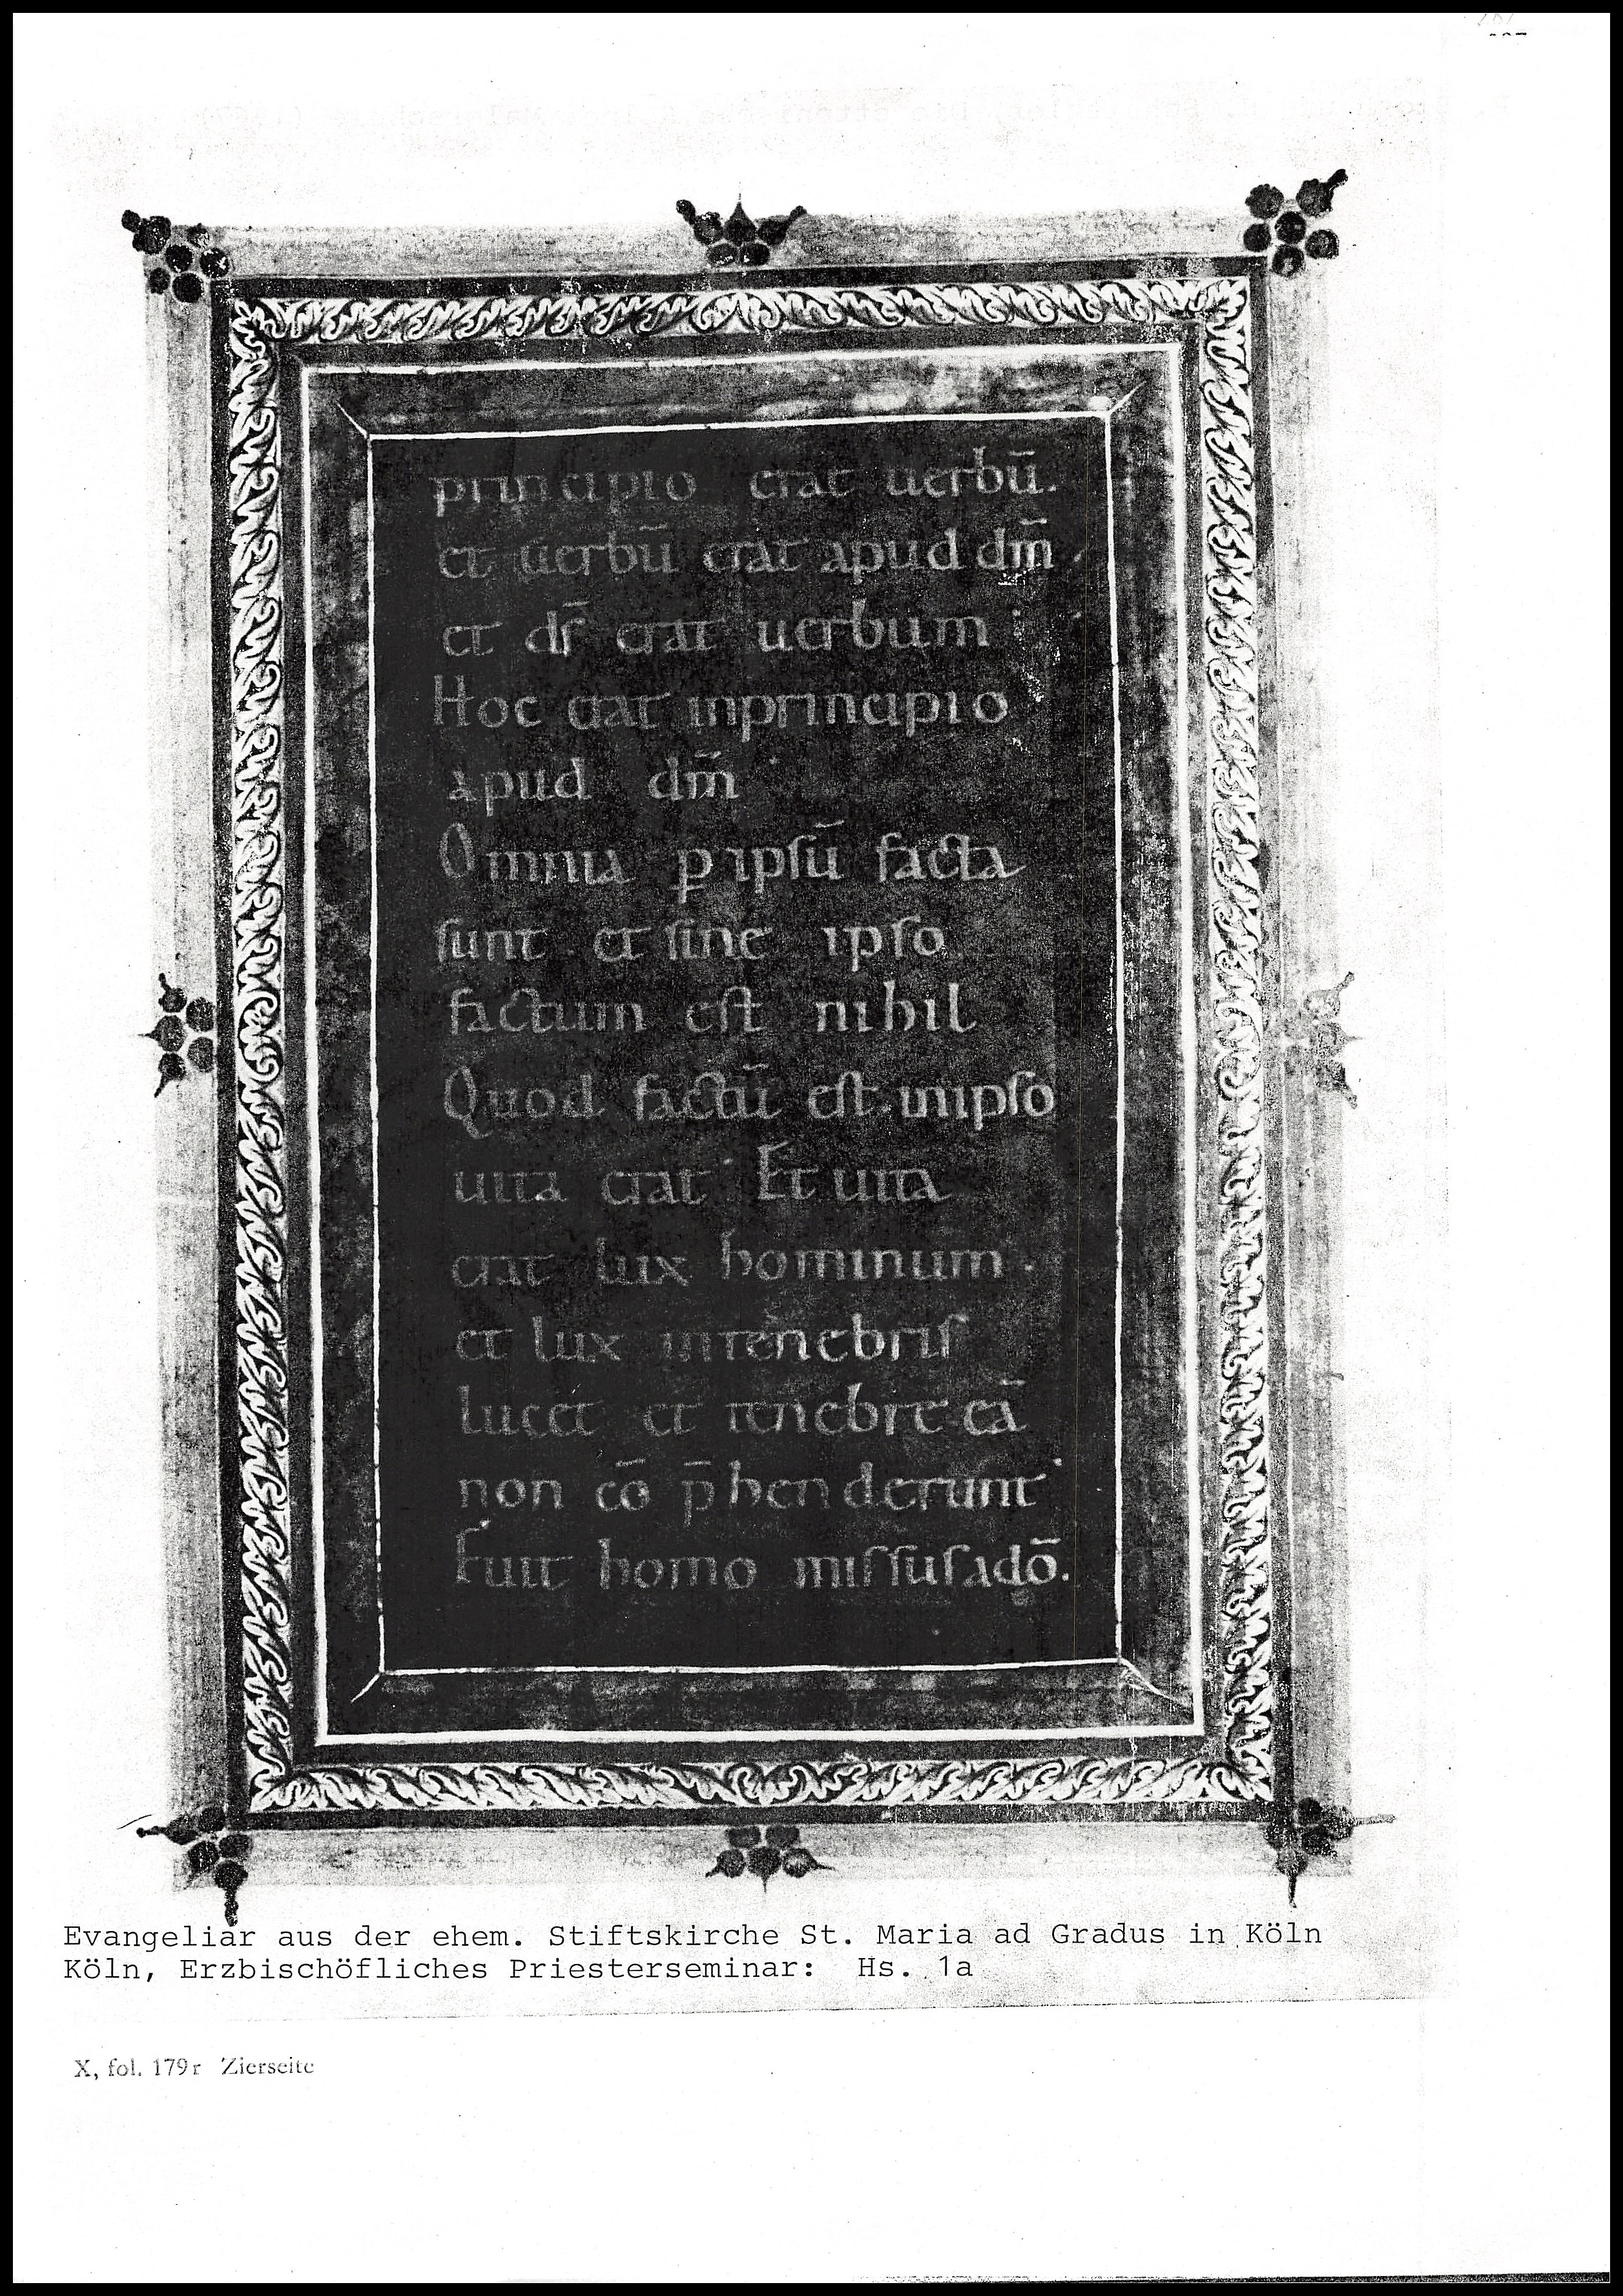 principio erat uerbū.
et uerbū erat apud dm̄.
et dſ̄ erat uerbum
Hoc erat inprincipio
apud dm̄
Omnia ꝑ ipſū facta
ſunt et ſine ipſo
factum eſt nihil
Quod factū eſt. inipſo
uita erat Et uita
erat lux hominum.
et lux intenebriſ
lucet et tenebre eā
non cō p̄henderunt
Fuit homo miſſuſadō.
Evangeliar aus der ehem. Stiftskirche St. Maria ad Gradus in Köln
Köln, Erzbischöfliches Priesterseminar: Hs. 1a
X, fol. 179r Zierseite